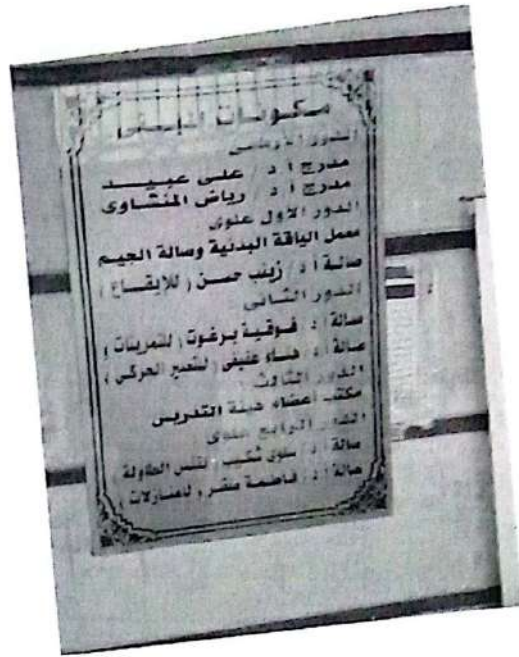 مكونات المبنى
الدور الأرضى
مدرج ا د / على عبيد
مدرج ا د / رياض المنشاوى
الدور الاول علوى
معمل الياقة البدنية وصالة الجيم
صالة ا د / زينب حسن ( للإيقاع )
الدور الثانى
صالة ا د / فوقية برغوت ( للتمرينات )
صالة ا د / هناء عفيفى ( للتعبير الحركى )
الدور الثالث
مكتب أعضاء هيئة التدريس
الدور الرابع علوى
صالة ا د / سلوى شكيب ( لتنس الطاولة )
صالة ا د / فاطمة ( للمنازلات )